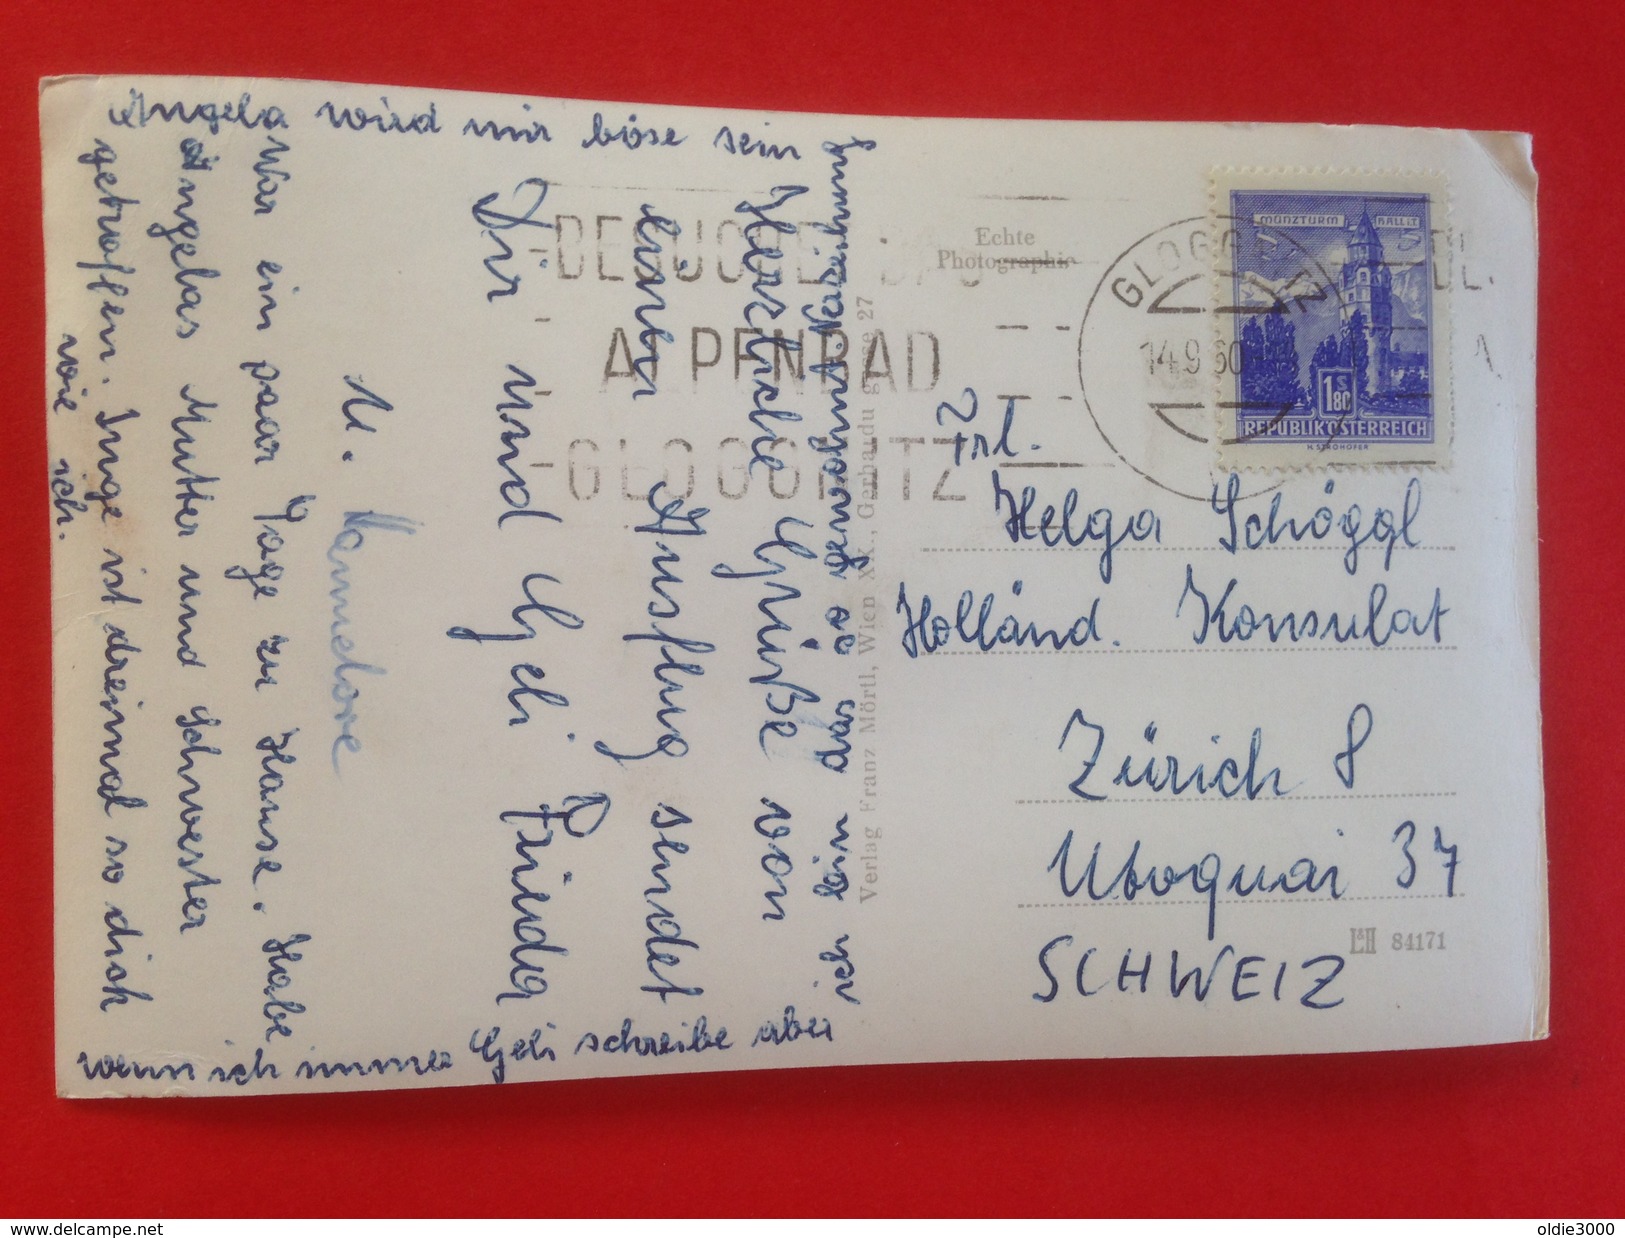 Angela wird mir böse sein
wenn ich immer Geli schreibe aber
ich bin das so gewohnt. Verzeihung
Herzliche Grüße von
einem Ausflug sendet
Dir und Geli Frieda
u. Hannelore
War ein paar Tage zu Hause. Habe
Angelas Mutter und Schwester
getroffen. Inge ist dreimal so dick
wie ich.
Echte
Photographie
Verlag Franz Mörtl, Wien XX., Gerhardusgasse 27
BESUCHET DAS
ALPENBAD
GLOGGNITZ
GLOGGNITZ
14.9.60
MÜNZTURM HALL i.T.
1 S 80
REPUBLIK ÖSTERREICH
H. STROHOFER
Frl.
Helga Schöggl
Holländ. Konsulat
Zürich 8
Utoquai 37
SCHWEIZ
L&H 84171
delcampe.net
oldie3000